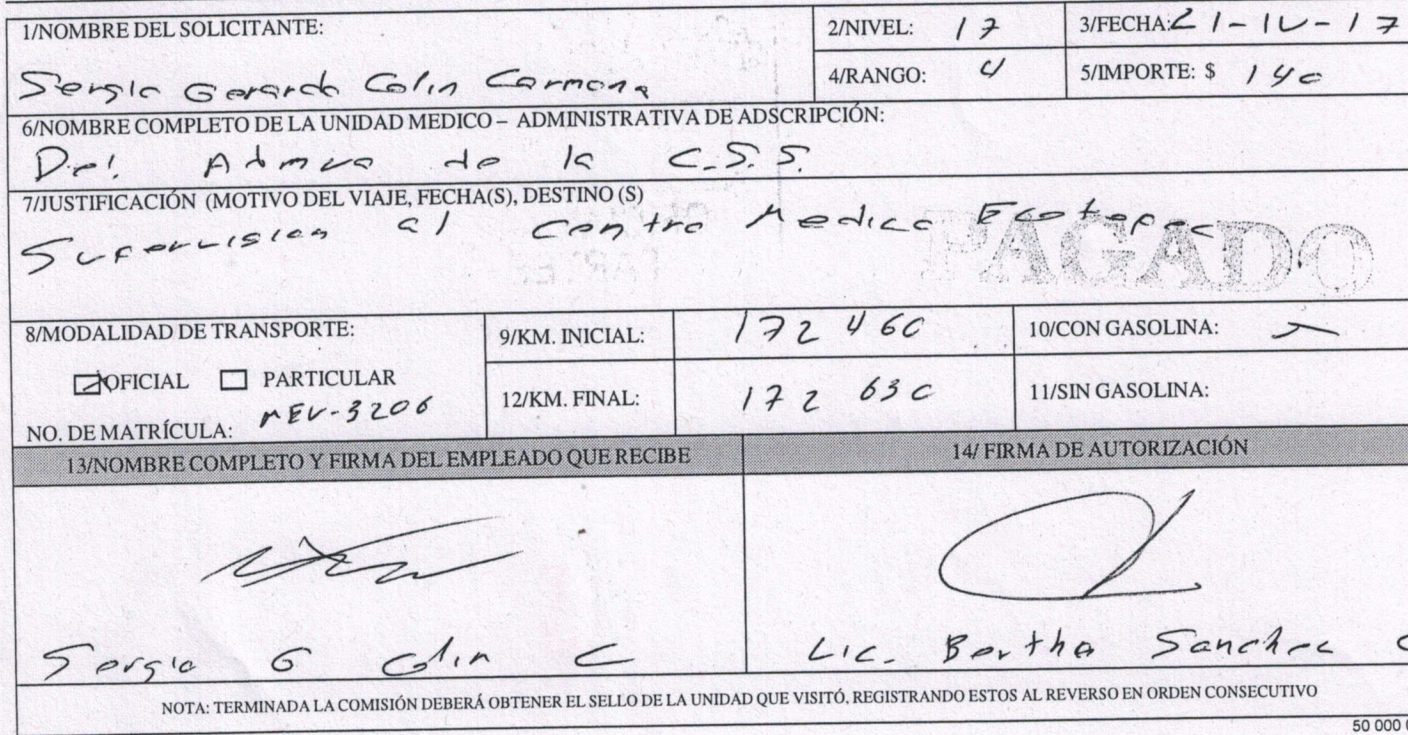 1/NOMBRE DEL SOLICITANTE:
Sergio Gerardo Colin Carmona
2/NIVEL: 17
3/FECHA: 21-IV-17
4/RANGO: 4
5/IMPORTE: $ 140
6/NOMBRE COMPLETO DE LA UNIDAD MEDICO – ADMINISTRATIVA DE ADSCRIPCIÓN:
Del. Admva de la C.S.S.
7/JUSTIFICACIÓN (MOTIVO DEL VIAJE, FECHA(S), DESTINO (S)
Supervision al Centro Medico Ecatepec
PAGADO
8/MODALIDAD DE TRANSPORTE:
OFICIAL PARTICULAR
NO. DE MATRÍCULA: MEV-3206
9/KM. INICIAL: 172 460
10/CON GASOLINA:
12/KM. FINAL: 172 630
11/SIN GASOLINA:
13/NOMBRE COMPLETO Y FIRMA DEL EMPLEADO QUE RECIBE
14/ FIRMA DE AUTORIZACIÓN
Sergio G Colin C
Lic. Bertha Sanchez C
NOTA: TERMINADA LA COMISIÓN DEBERÁ OBTENER EL SELLO DE LA UNIDAD QUE VISITÓ, REGISTRANDO ESTOS AL REVERSO EN ORDEN CONSECUTIVO
50 000